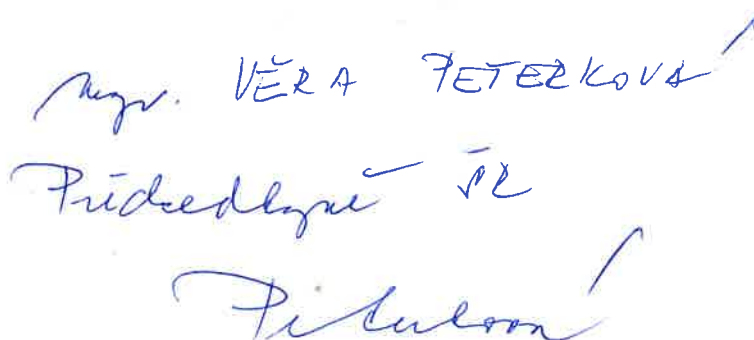 Mgr. VĚRA PETERKOVÁ
Předsedkyně ŠR
Peterková